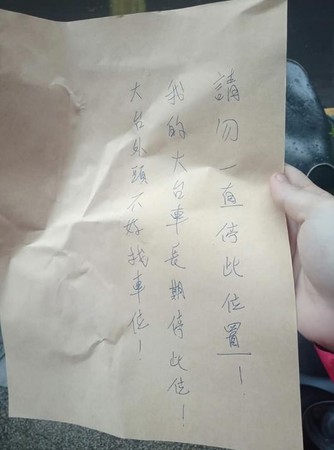 請勿一直停此位置!
我的大台車長期停此位!
大台外頭不好找車位!